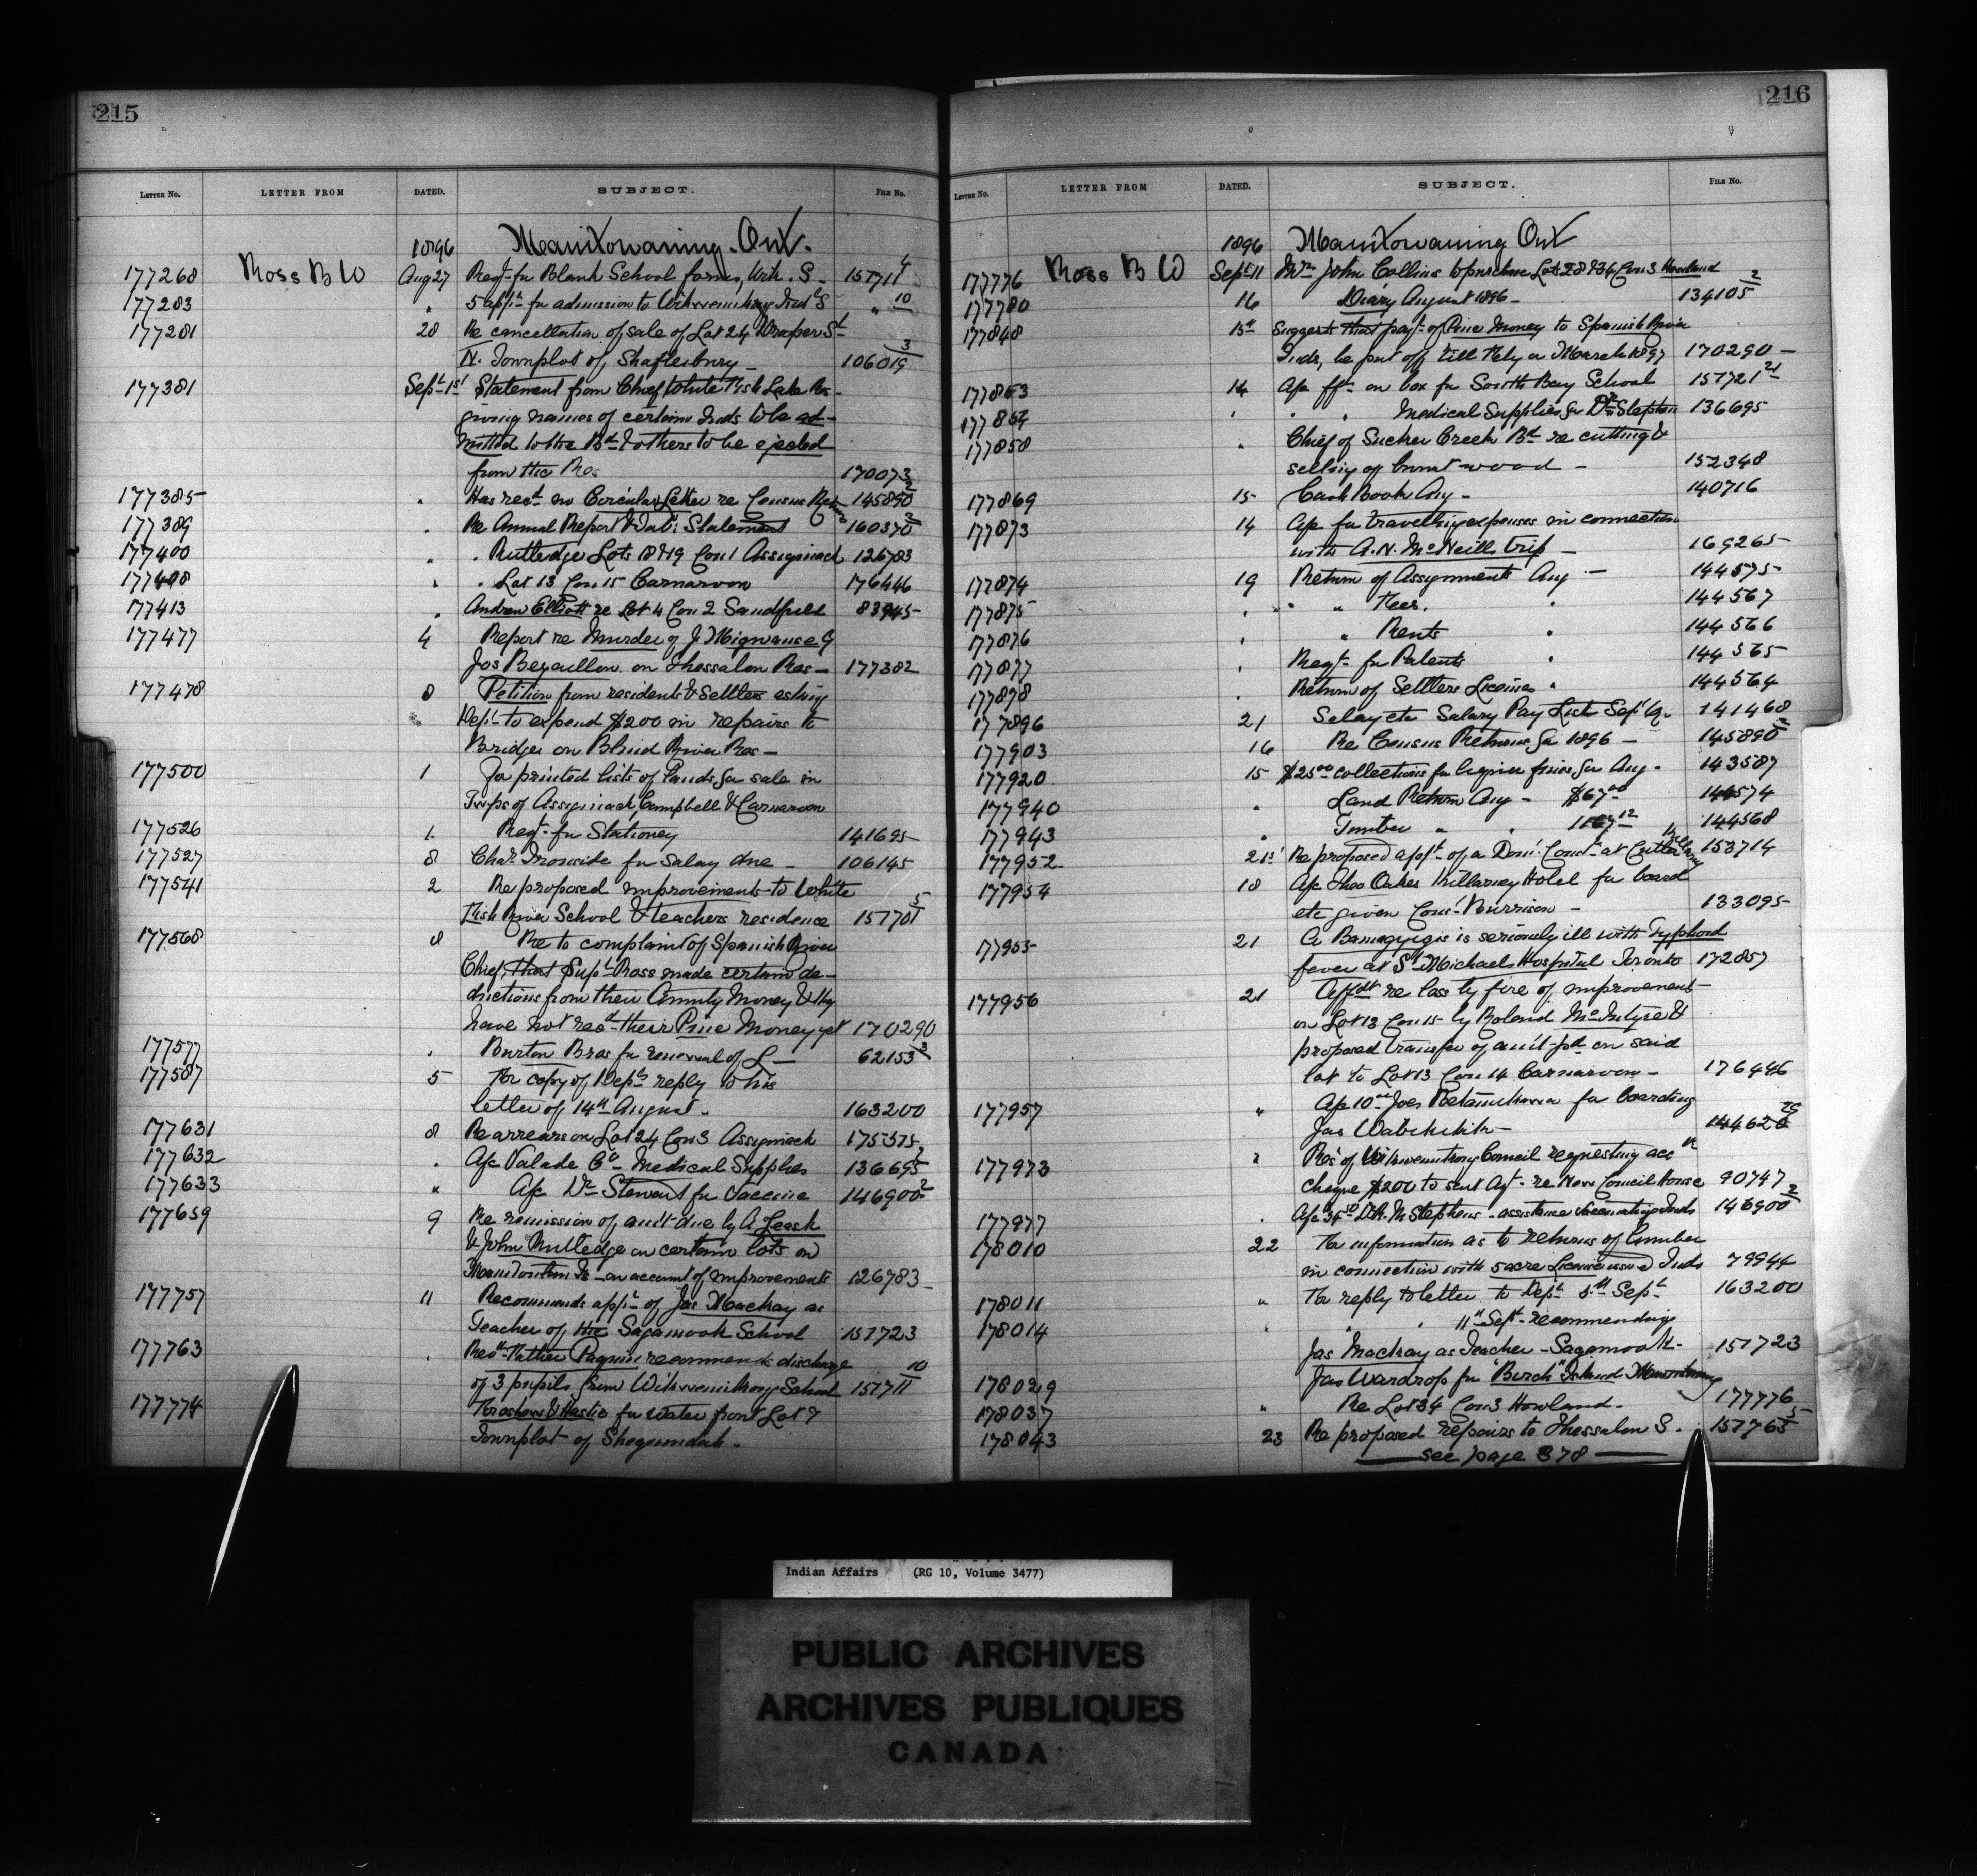 215
LETTER NO. LETTER FROM DATED. SUBJECT. FILE NO.
1896 Manitowaning. Ont.
177268 Ross B W Aug 27 Reqt. for Blank School forms, Wik. S - 157711 4
177283 " 5 appln for admission to Wikwemikong Indl S " 10
177281 28 Re cancellation of sale of Lot 24 Draper St
N. Townplot of Shaftesbury - 106019 3
177381 Sept 1st Statement from Chief White Fish Lake Res -
giving names of certain Inds to be ad-
mitted to the Bd & others to be ejected
from the Res 170073
177385 " Has recd no Circular Letter re Census Retn 145890 2
177389 " Re Annual Report & Tab: Statement 160370 2
177400 " " Rutledge Lots 18 & 19 Con 1 Assiginack 126783
177408 " " Lot 13 Con 15 Carnarvon 176446
177413 " Andrew Elliott re Lot 4 Con 2 Sandfield 83945
177477 4 Report re Murder of J Migwanse by
Jos on Thessalon Res - 177382
177478 8 Petition from residents & Settlers asking
Dept to expend $200 in repairs to
Bridges on Blind River Res -
177500 1 For printed lists of lands for sale in
Twps of Assiginack, Campbell & Carnarvon
177526 1. Reqt. for Stationey 141695
177527 8 Chas Ironside for Salary due - 106145
177541 2 Re proposed improvements to White
Fish River School & teachers residence 151701 5
177568 8 Re to complaint of Spanish River
Chief, that Supt Ross made certain de-
ductions from their Annuity Money & they
have not recd their Pine Money yet 170290
177577 " Burton Bros for renewal of L — 62153 3
177587 5 For copy of Depts reply to his
letter of 14th August - 163200
177631 8 Re arrears on Lot 24 Con 3 Assiginack 175375
177632 " A/c Valade Co - Medical Supplies 136695 2
177633 " A/c Dr Stewart for Vaccine 146900 2
177659 9 Re remission of amt due by A Leask
& John Rutledge on certain lots on
Manitoulin Is - on account of improvements 126783
177757 11 Recommends appt of Jas Mackay as
Teacher of the Sagamook School 151723
177763 " Revd Father Paquin recommends discharge
of 3 pupils from Wikwemikong School 157711 10
177774 & Hastie for water front Lot 7
Townplot of Shegunndah -
216
LETTER NO. LETTER FROM DATED. SUBJECT. FILE NO.
1896 Manitowaning Ont
177776 Ross B W Sept 11 Mr John Collins to purchase Lots 28 & 34 Con 3 Howland
177780 16 Diary August 1896 - 134105 2
177848 15th Suggests that payt of Pine Money to Spanish River
Inds, be put off till Feby or March 1897 170290 -
177863 14 A/c fft on box for South Bay School 151721 21
177864 " " " Medical Supplies for Dr Stephen 136695
177858 " Chief of Sucker Creek Bd re cutting &
selling of burnt wood - 152348
177869 15 Cash Book Aug - 140716
177873 14 A/c for travelling expenses in connection
with A.N. McNeill trip - 169265
177874 19 Return of Assignments Aug - 144575
177875 " " " Fees. " 144567
177876 " " Rents " 144566
177877 " Reqt. for Patents " 144565
177878 " Return of Settlers Licenses " 144564
177896 21 Salary Pay List Sept Qr 141468
177903 16 Re Census Returns for 1896 - 145890 2
177920 15 $25.00 collections for liquor fines for Aug - 143587
177940 " Land Return Aug - $67.00 144574
177943 " Timber " " 1167.12 144568
177952 21st Re proposed appt of a Dom: Const. at Cutler Killarney 153714
177954 18 A/c Thos Oakes Killarney Hotel for board
etc given Const. Burrison - 133095
177955 21 A. Bamagyegis is seriously ill with Typhoid
fever at St Michaels Hospital Toronto 172857
177956 21 Affdt re loss by fire of improvements
on Lot 13 Con 15 by Roland McIntyre &
proposed transfer of amt pd on said
lot to Lot 13 Con 14 Carnarvon - 176446
177957 " A/c 10.00 Joes for boarding
Jas - 144620 29
177973 " Res of Wikwemikong Council requesting acc
cheque $200 to sent Agt - re New Council House 90747
177977 " A/c 34.50 R.M Stephens - assistance Vaccinating Inds 146900 2
178010 22 For information as to returns of timber
in connection with 5 acre License issued Inds 79944
178011 " For reply to letter to Dept 5th Sept 163200
178014 " " " 11th Sept - recommending
Jas Mackay as Teacher - Sagamook - 151723
178029 Jas Wardrop for "Birch" Island Manitowaning
178037 " Re Lot 34 Con 3 Howland - 177776
178043 23 Re proposed repairs to Thessalon S. 157765 5
— see page 378 —
Indian Affairs (RG 10, Volume 3477)
PUBLIC ARCHIVES
ARCHIVES PUBLIQUES
CANADA